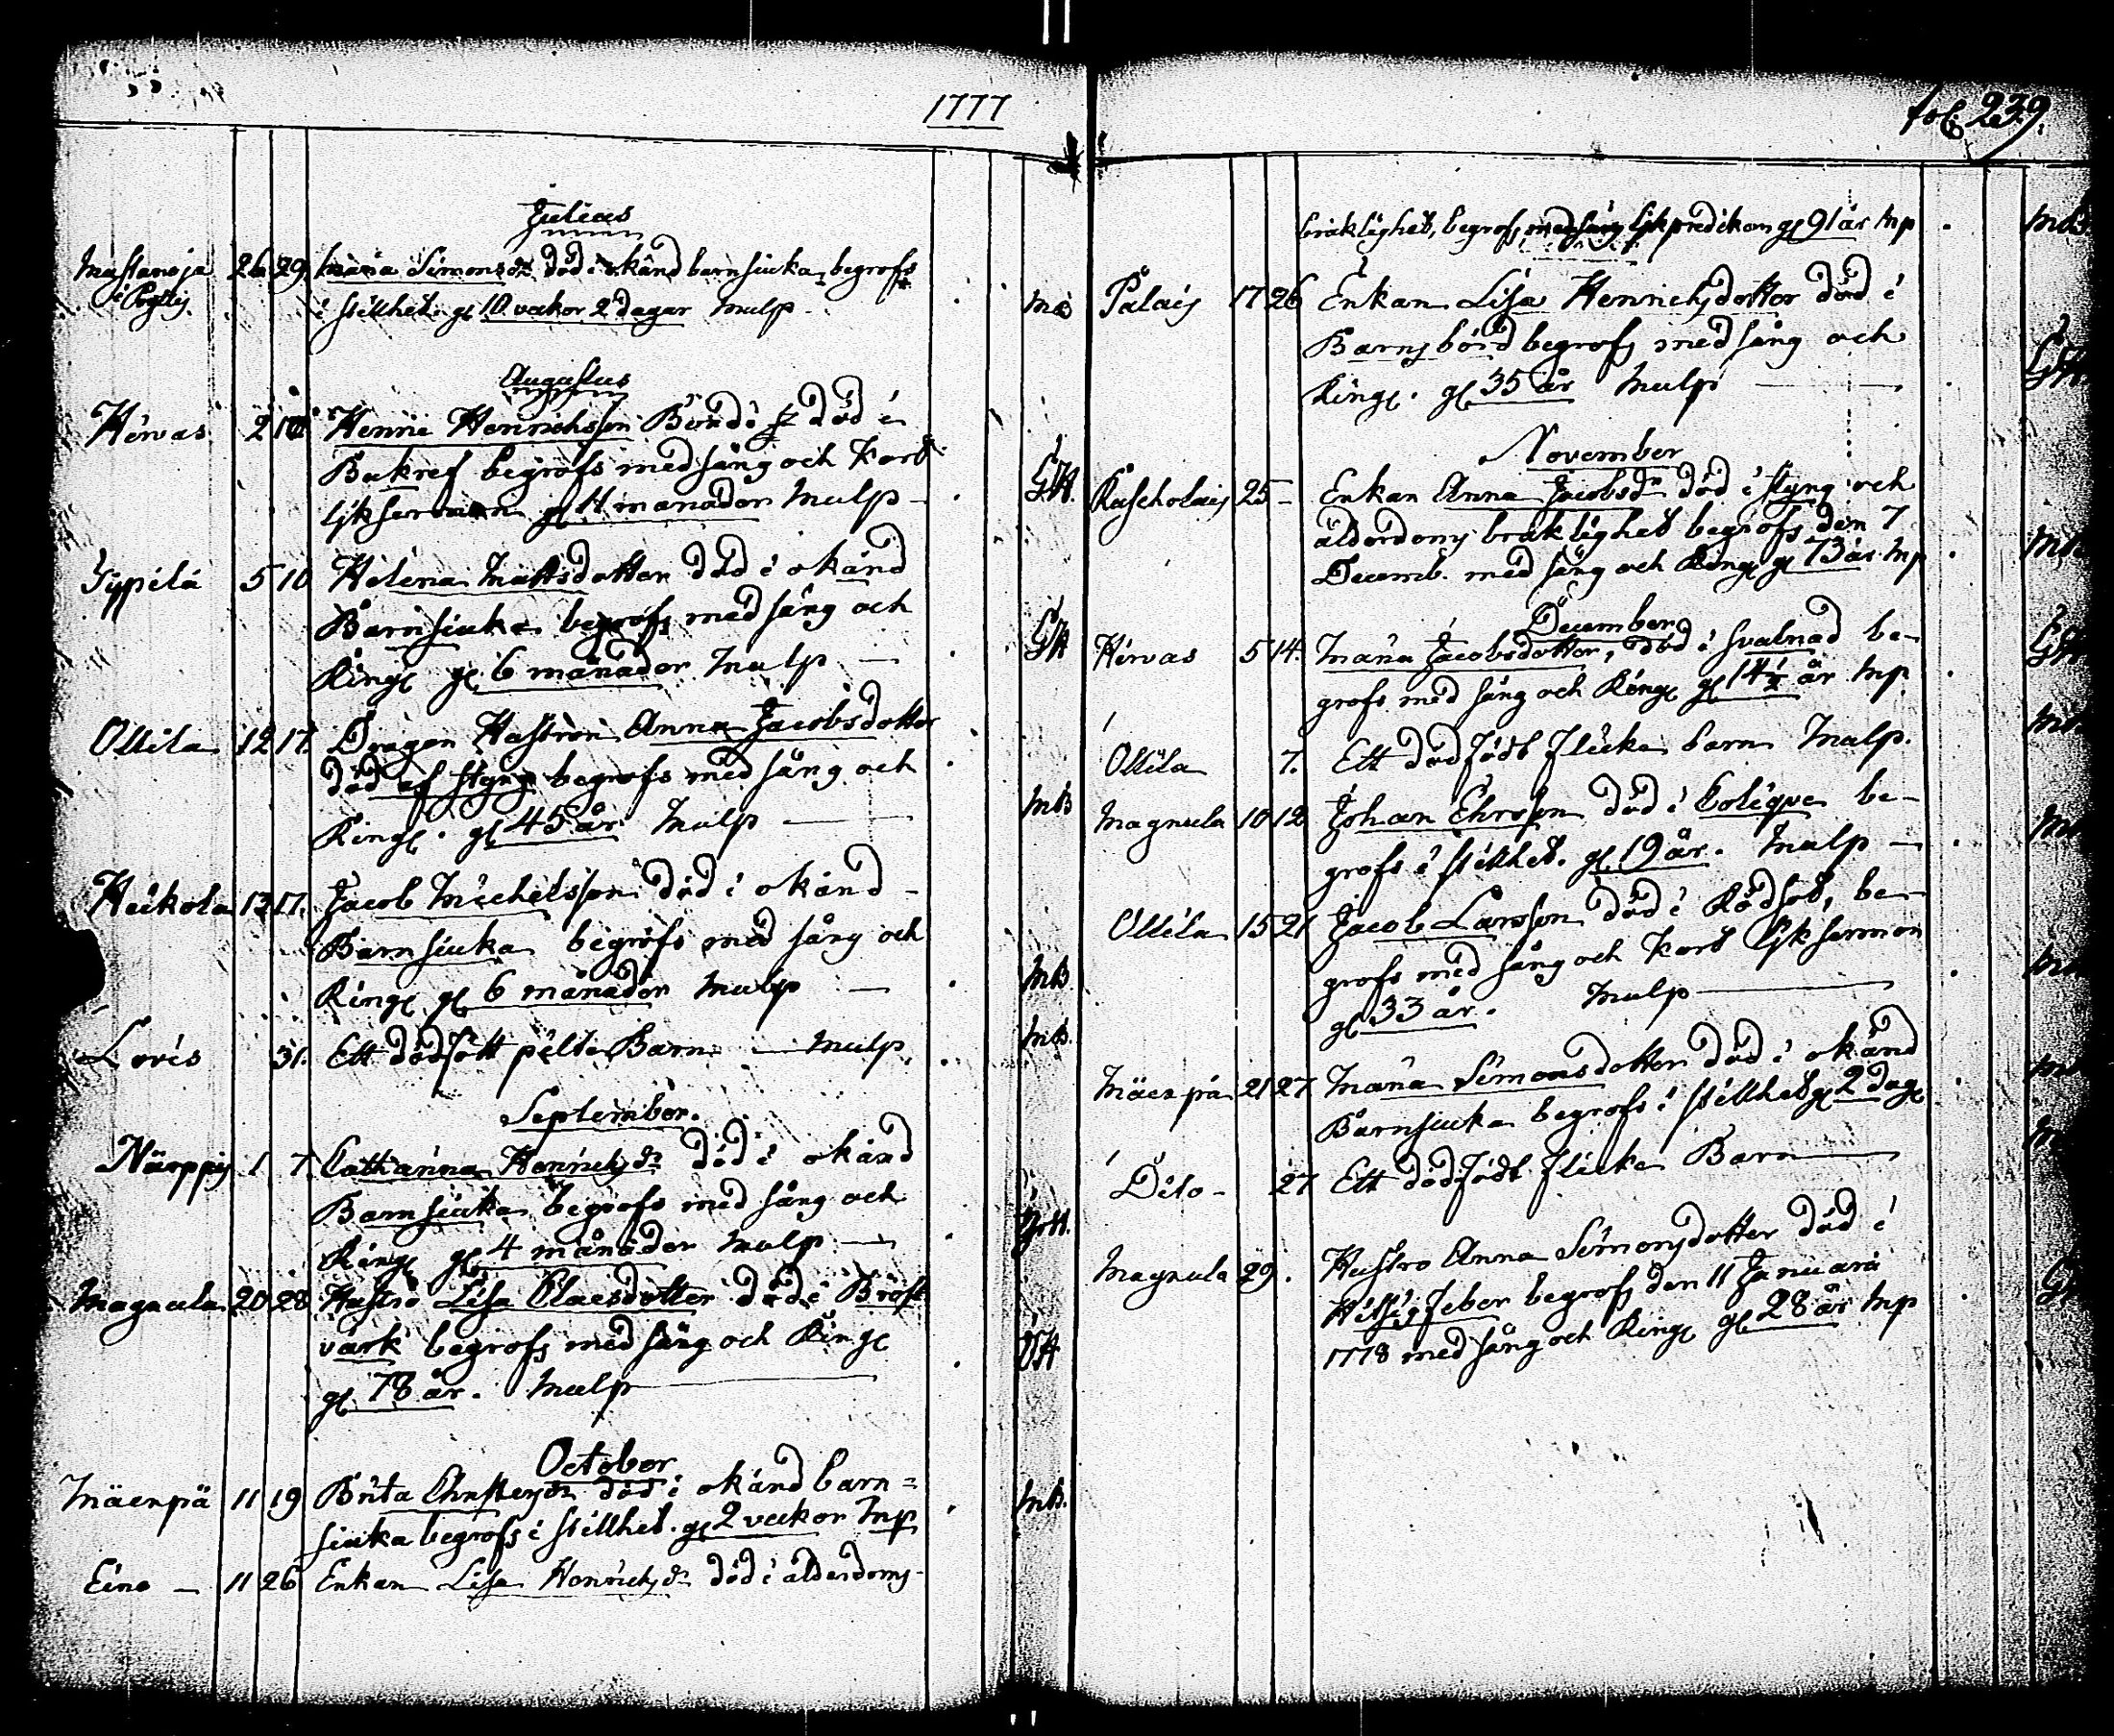 1777
Julius
Mustanoja 26 29. Maria Simonsdr död i okänd barnsiuka, begrofs
i Pegttij i stillhet. gl 10 veckor 2 dagar Mulp. MB
Augustus
Hirvas 2 10 Henric Henrichsson Bonde sr död i
Bukref begrofs med sång och kort
lijksermon gl 4 månader Mulp GH.
Typilä 5 10 Helena Mattsdotter död i okänd
Barnsiuka begrofs med sång och
Ringg gl 6 månader Mulp GH
Ollila 12 17 Dragon Hustrun Anna Jacobsdotter
död af styng begrofs med sång och
Ringg. gl 45 år. Mulp MB
Heikola 13 17. Jacob Michelsson död i okänd
Barnsiuka begrofs med sång och
Ringg gl 6 månader Mulp MB
Lovis 31. Ett dödfött pilte Barn Mulp. MB.
September.
Närppij 1 7 Catharina Henricsdr död i okänd
Barnsiuka begrofs med sång och
Ringg gl 4 månader Mulp GH.
Magnula 20 28 Hustro Lisa Claesdotter död i Bröst
värk begrofs med sång och Ringg
gl 78 år. Mulp GH
October
Mäenpä 11 19 Brita Christersdr död i okänd barn=
siuka begrofs i stillhet. gl 2 veckor Mp MB.
Eino 11 26 Enkan Lisa Henricsdr död i ålderdoms-
fol. 239.
bräklighet, begrofs med sång lijkpredikan gl 91 år Mp. MB
Palais 17 26 Enkan Lisa Henrichsdotter död i
Barnsbörd begrofs med sång och
Ringg. gl 35 år Mulp GH
November
Kascholais 25 - Enkan Anna Jacobsdr död i styng och
ålderdoms bräklighet begrofs den 7
Decemb. med sång och Ringg gl 73 år Mp.
December
Hirvas 5 14. Maria Jacobsdotter, död i svalnad be-
grofs med sång och Ringg gl 14½ år Mp.
Ollila 7. Ett dödfödt flicke barn Mulp.
Magnula 10 12 Johan Ehrsson död i Colique be-
grofs i stillhet. gl 19 år. Mulp
Ollila 15 21 Jacob Larsson död i Rödsot, be-
grofs med sång och kort lijksermon
gl 33 år. Mulp
Mäenpä 21 27 Maria Simonsdotter död i okänd
Barnsiuka begrofs i stillhet gl 2 dagr
Dito - 27 Ett dödfödt flicke Barn
Magnula 29. Hustro Anna Simonsdotter död i
Hitsig feber begrofs den 11 Januarii
1778 med sång och Ringg gl 28 år Mp